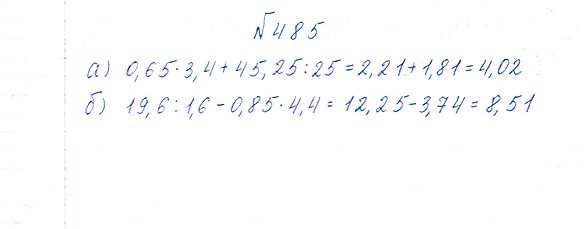 №485
а) 0,65·3,4+45,25:25=2,21+1,81=4,02
б) 19,6:1,6-0,85·4,4=12,25-3,74=8,51